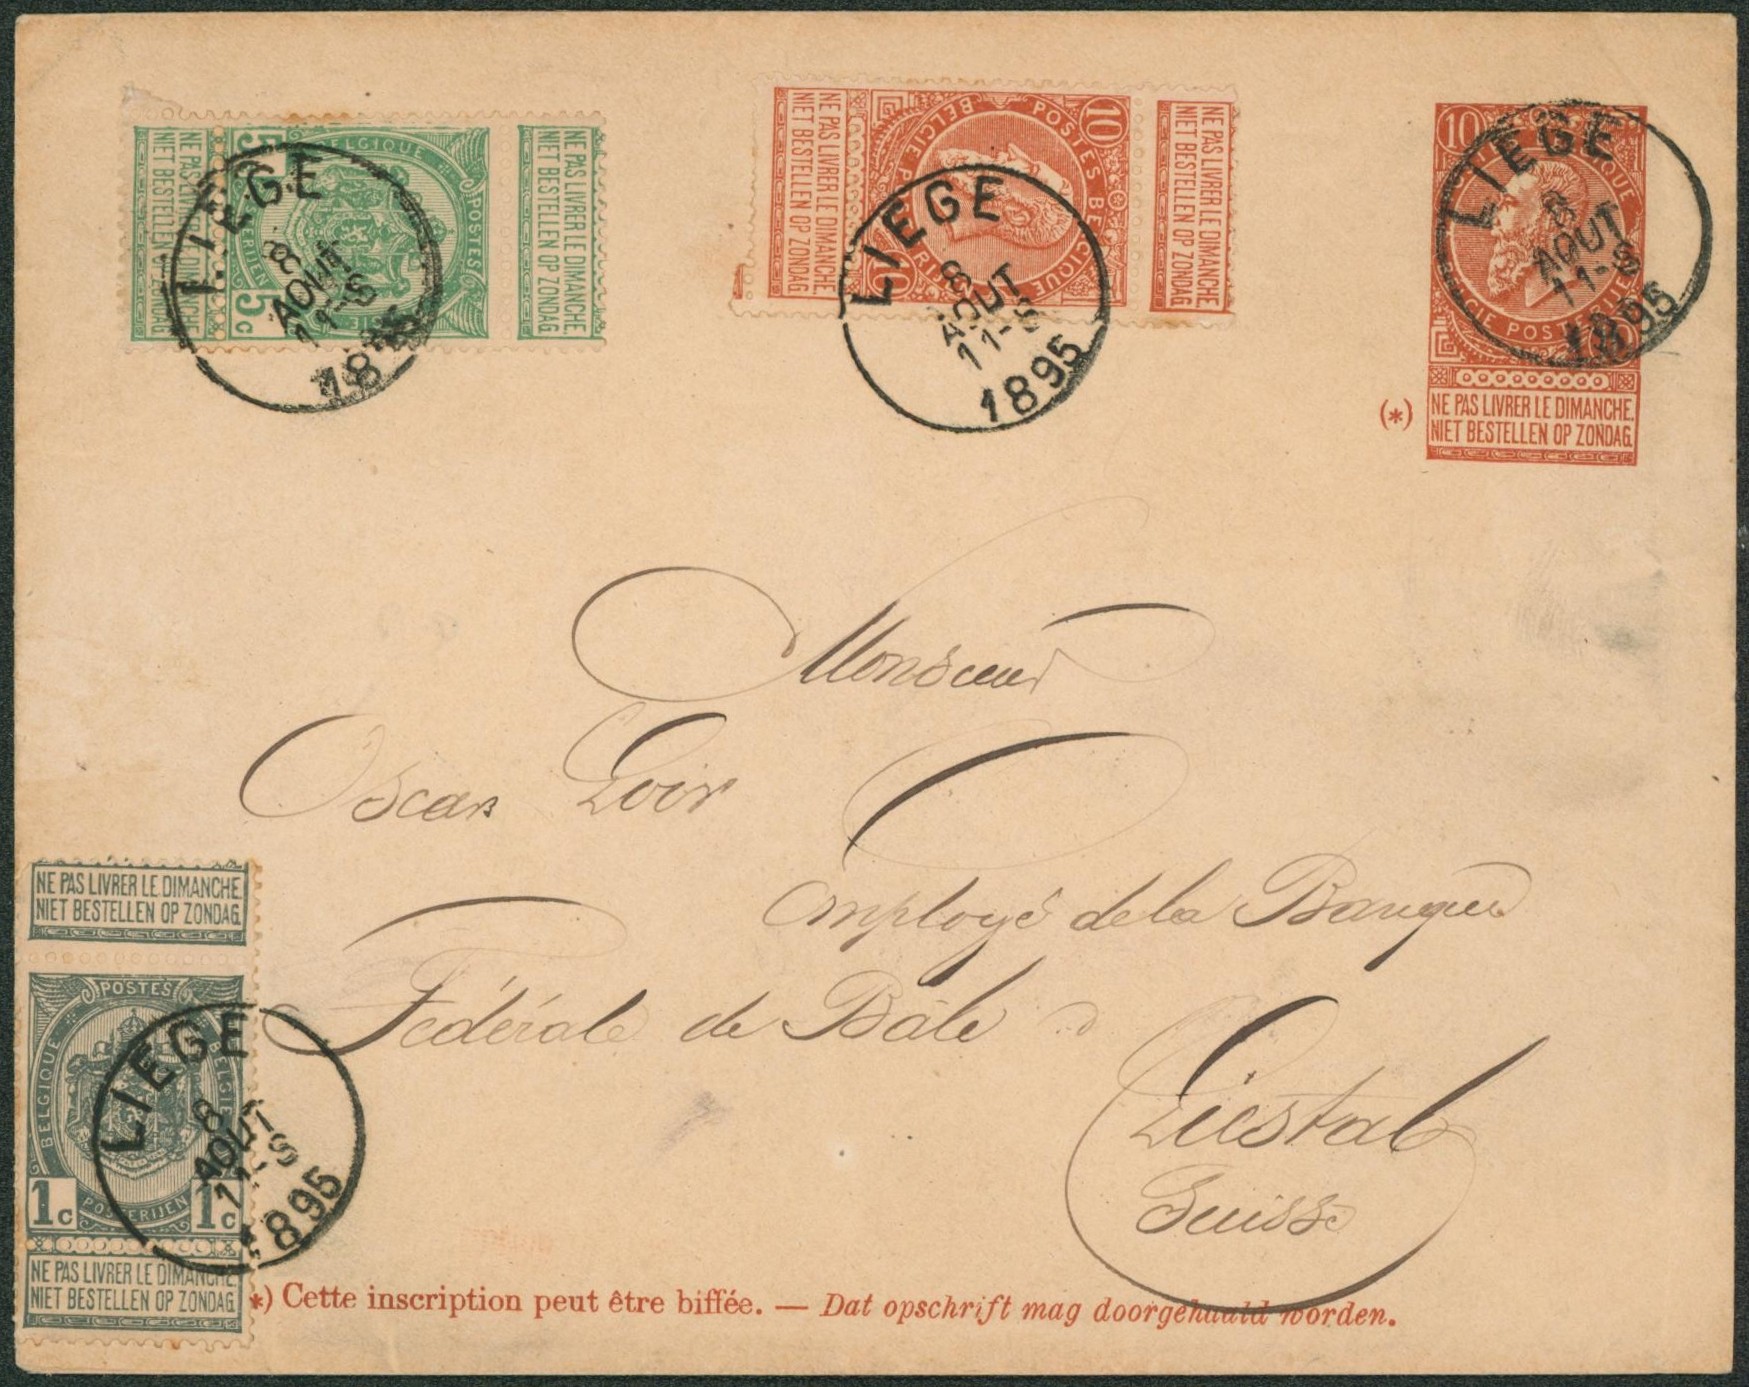 NE PAS LIVRER LE DIMANCHE
NIET BESTELLEN OP ZONDAG
5 BELGIQUE POSTES
5c
NE PAS LIVRER LE DIMANCHE.
NIET BESTELLEN OP ZONDAG.
LIEGE
8
AOUT
11-S
1895
NE PAS LIVRER LE DIMANCHE
NIET BESTELLEN OP ZONDAG
10 POSTES BELGIQUE
10
NE PAS LIVRER LE DIMANCHE.
NIET BESTELLEN OP ZONDAG.
LIEGE
8
AOUT
11-S
1895
10
BELGIE POSTERIJEN
LIEGE
8
AOUT
11-S
1895
(*) NE PAS LIVRER LE DIMANCHE.
NIET BESTELLEN OP ZONDAG.
Monsieur
Oscar Loir
employé de la Banque
Fédérale de Bâle
Liestal
Suisse
NE PAS LIVRER LE DIMANCHE.
NIET BESTELLEN OP ZONDAG.
POSTES
BELGIQUE BELGIE
1c POSTERIJEN 1c
LIEGE
8
AOUT
11-S
1895
NE PAS LIVRER LE DIMANCHE.
NIET BESTELLEN OP ZONDAG.
*) Cette inscription peut être biffée. — Dat opschrift mag doorgehaald worden.